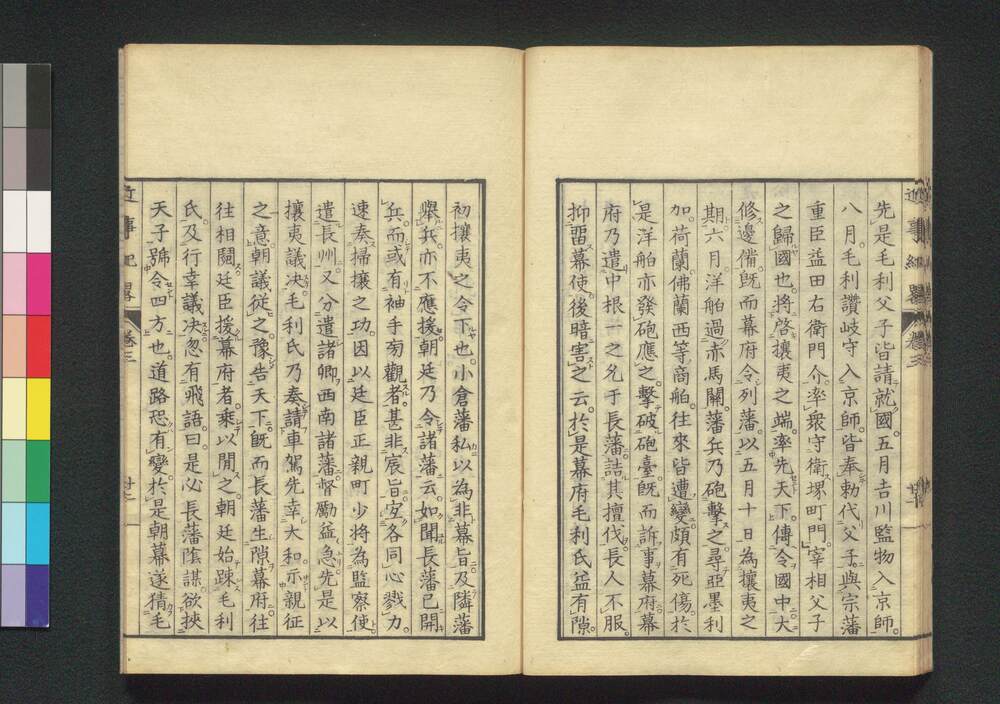 先是毛利父子皆請就國。五月吉川監物入京師。
八月。毛利讚岐守入京師。皆奉勅代父子。與宗藩
重臣益田右衛門介率衆守衛堺町門。宰相父子
之歸國也。將啓攘夷之端率先天下。傳令國中。大
修邊備。既而幕府令列藩。以五月十日為攘夷之
期。六月洋舶過赤馬關。藩兵乃砲擊之。尋亞墨利
加。荷蘭。佛蘭西等商舶。往來皆遭變。頗有死傷。於
是洋舶亦發砲應之。擊破砲臺。既而訴事幕府。幕
府乃遣中根一之允于長藩。詰其擅伐。長人不服。
抑留幕使。後暗害之云。於是幕府毛利氏益有隙。
近事紀畧 卷三
初攘夷之令下也。小倉藩私以為非幕旨。及隣藩
舉兵。亦不應援。朝廷乃令諸藩云。如聞長藩已開
兵。而或有袖手旁觀者。甚非宸旨。宜各同心戮力。
速奏掃攘之功。因以廷臣正親町少將為監察使。
遣長州。又分遣諸卿西南諸藩。督勵益急。先是以
攘夷議决。毛利氏乃奏請車駕先幸大和。示親征
之意。朝議從之。豫告天下。既而長藩生隙幕府。往
往相鬩。廷臣援幕府者。乘以閒之。朝廷始疎毛利
氏。及行幸議决。忽有飛語。曰。是必長藩陰謀。欲挾
天子號令四方也。道路恐有變。於是朝幕遂猜毛
近事紀畧 卷三